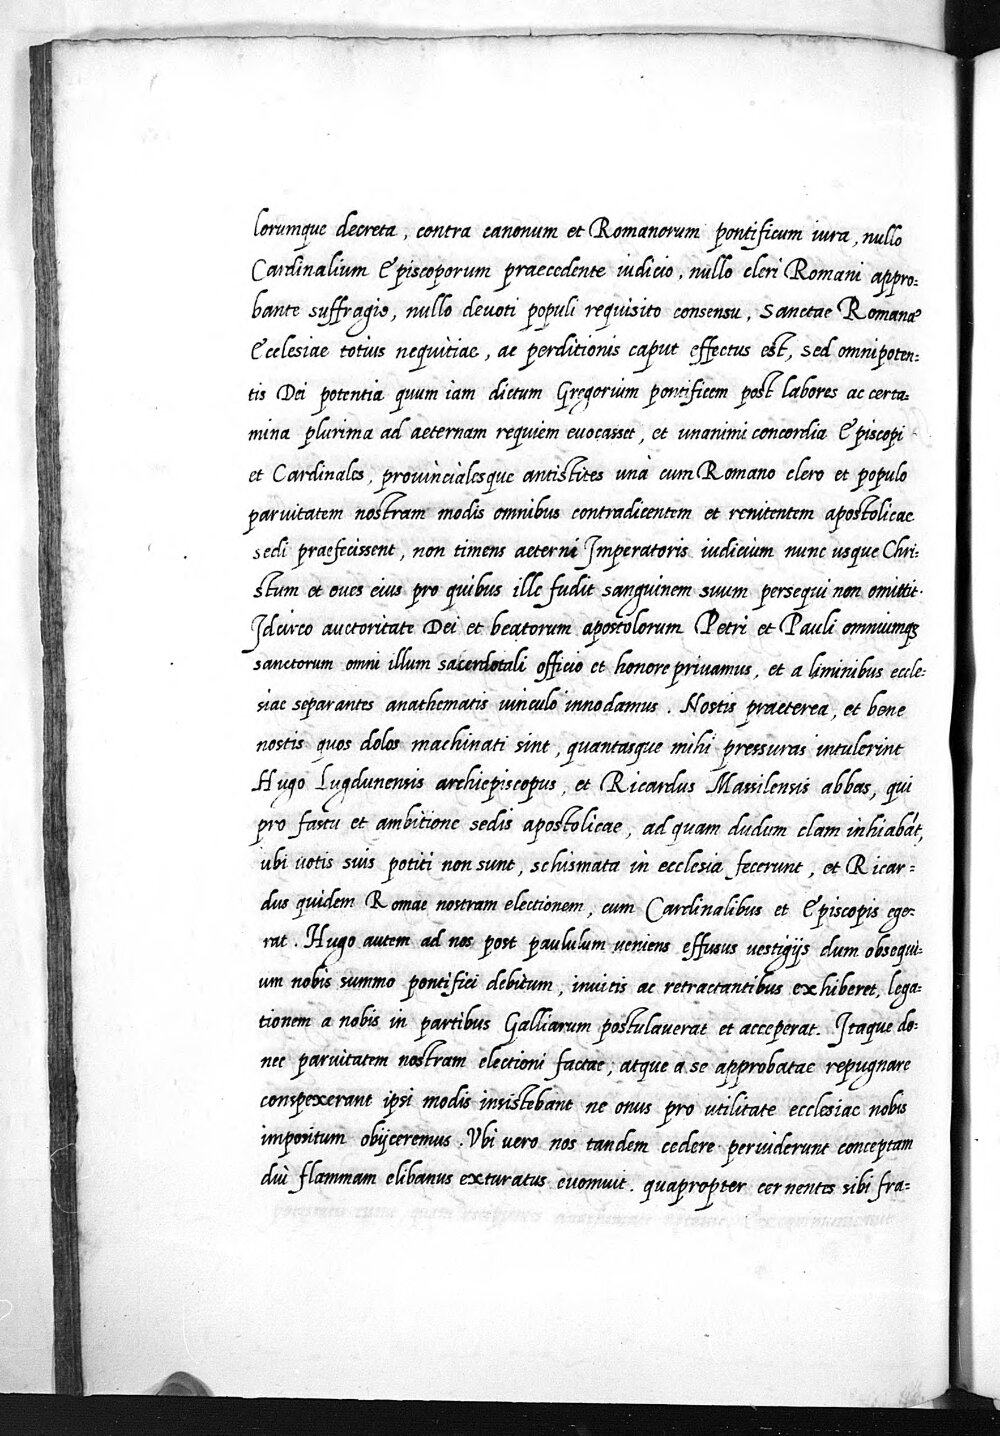 lorumque decreta, contra canonum et Romanorum pontificum iura, nullo
Cardinalium Episcoporum praecedente iudicio, nullo cleri Romani appro=
bante suffragio, nullo devoti populi requisito consensu, Sanctae Romanae
Ecclesiae totius nequitiae, ac perditionis caput effectus est, sed omnipoten=
tis Dei potentia quum iam dictum Gregorium pontificem post labores ac certa=
mina plurima ad aeternam requiem evocasset, et unanimi concordia Episcopi
et Cardinales, provincialesque antistites unà cum Romano clero et populo
parvitatem nostram modis omnibus contradicentem et renitentem apostolicae
sedi praefecissent, non timens aeterni Imperatoris iudicium nunc usque Chri=
stum et oves eius pro quibus ille fudit sanguinem suum persequi non omittit.
Idcirco auctoritate Dei et beatorum apostolorum Petri et Pauli omniumq3
sanctorum omni illum sacerdotali officio et honore privamus, et a liminibus eccle=
siae separantes anathematis vinculo innodamus. Nostis praeterea, et bene
nostis quos dolos machinati sint, quantasque mihi pressuras intulerint
Hugo Lugdunensis archiepiscopus, et Ricardus Massilensis abbas, qui
pro fastu et ambitione sedis apostolicae, ad quam dudum clam inhiabát,
ubi votis suis potiti non sunt, schismata in ecclesia fecerunt, et Ricar=
dus quidem Romae nostram electionem, cum Cardinalibus et Episcopis ege=
rat. Hugo autem ad nos post paululum veniens effusus vestigijs dum obsequi=
um nobis summo pontifici debitum, invitis ac retractantibus exhiberet, lega=
tionem a nobis in partibus Galliarum postulaverat et acceperat. Itaque do=
nec parvitatem nostram electioni factae, atque a se approbatae repugnare
conspexerant ipsi modis insistebant ne onus pro utilitate ecclesiae nobis
impositum obijceremus. Ubi vero nos tandem cedere perviderunt conceptam
diù flammam elibanus exturatus evomuit. quapropter cernentes sibi fra=